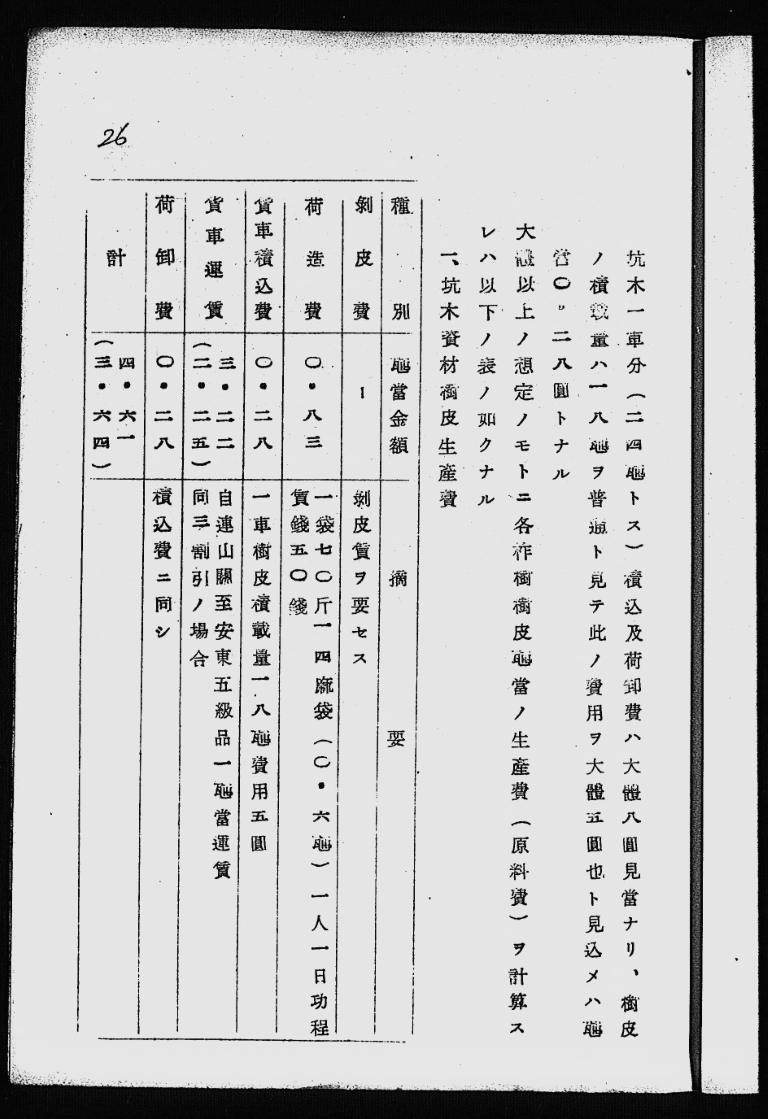 坑木一車分(二四瓲トス)積込及荷卸費ハ大體八圓見當ナリ、樹皮
ノ積載量ハ一八瓲ヲ普通ト見テ此ノ費用ヲ大體五圓也ト見込メハ瓲
當〇・二八圓トナル
大體以上ノ想定ノモトニ各柞樹樹皮瓲當ノ生產費(原料費)ヲ計算ス
レハ以下ノ表ノ如クナル
一、坑木資材樹皮生產費
種別 瓲當金額 摘要
剝皮費 ー 剝皮賃ヲ要セス
荷造費 〇・八三 一袋七〇斤一四麻袋(〇・六瓲)一人一日功程
賃錢五〇錢
貨車積込費 〇・二八 一車樹皮積載量一八瓲費用五圓
貨車運賃 三・二二 自連山關至安東五級品一瓲當運賃
(二・二五) 同三割引ノ場合
荷卸費 〇・二八 積込費ニ同シ
計 四・六一
(三・六四)
26